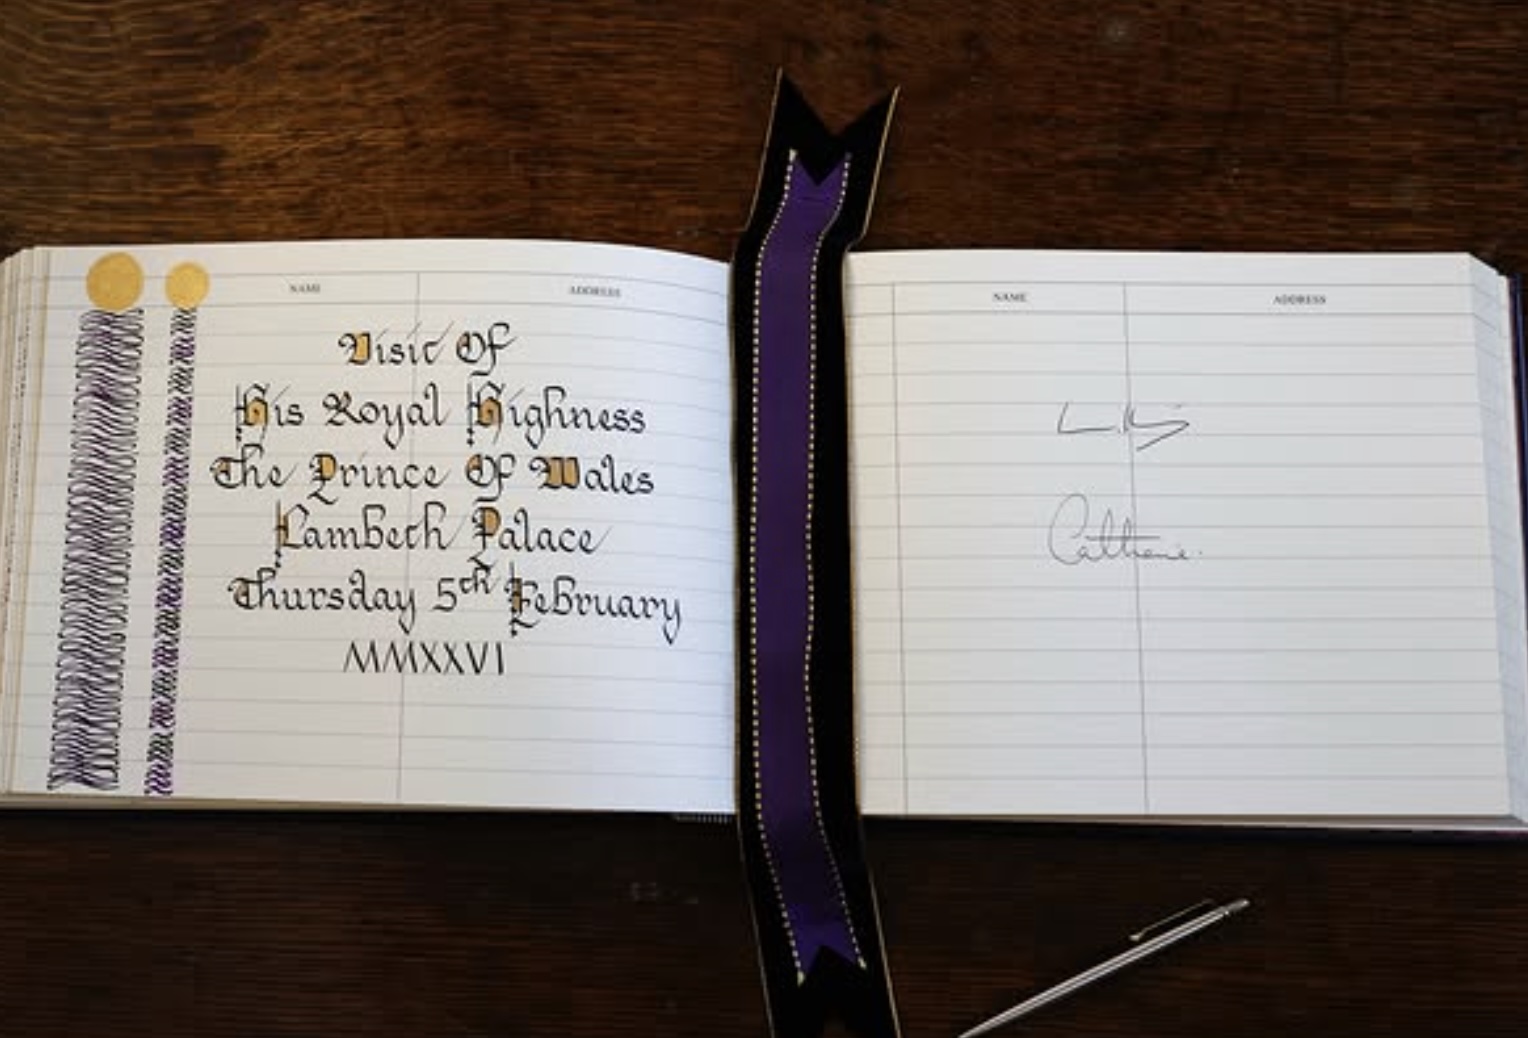 NAME ADDRESS
Visit Of
His Royal Highness
The Prince Of Wales
Lambeth Palace
Thursday 5th February
MMXXVI
NAME ADDRESS
Catherine.